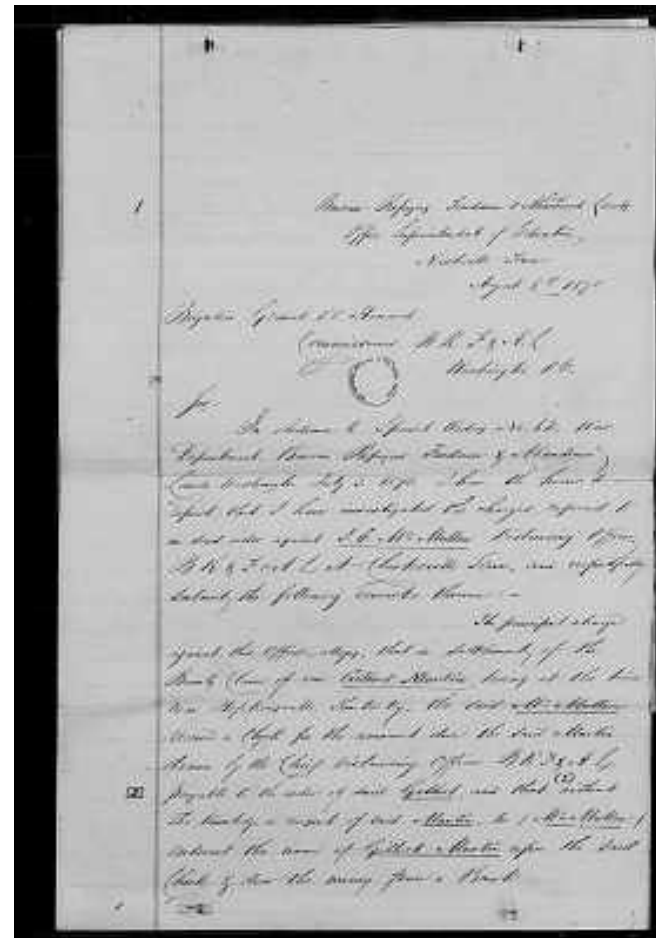 Bureau Refugees Freedmen & Abandoned Lands
Office Superintendent of Education,
Nashville Tenn
August 6th 1870
Brigadier General O. O. Howard
Commissioner B. R. F. & A. L.
Washington D.C.
Sir
In to Special Orders War
Department Bureau Refugees Freedmen & Abandoned
Lands July 1870 I have the honor to
report that I have investigated the charges referred to
in said order against J. C. McMullen Disbursing Officer,
B. R. F. & A. L. at Clarksville Tenn, and respectfully
submit the following remarks thereon:—
The principal charge
against this Officer that in settlement of the
Bounty Claim of one Gilbert Martin living at the time
near Hopkinsville Kentucky, the said McMullen
a Check for the amount due the said Martin
drawn by the Chief Disbursing Officer B. R. F. & A. L.
payable to the order of said Gilbert, and that without
the knowledge or consent of said Martin, he (McMullen)
endorsed the name of Gilbert Martin upon the said
Check & drew the money from a Bank.